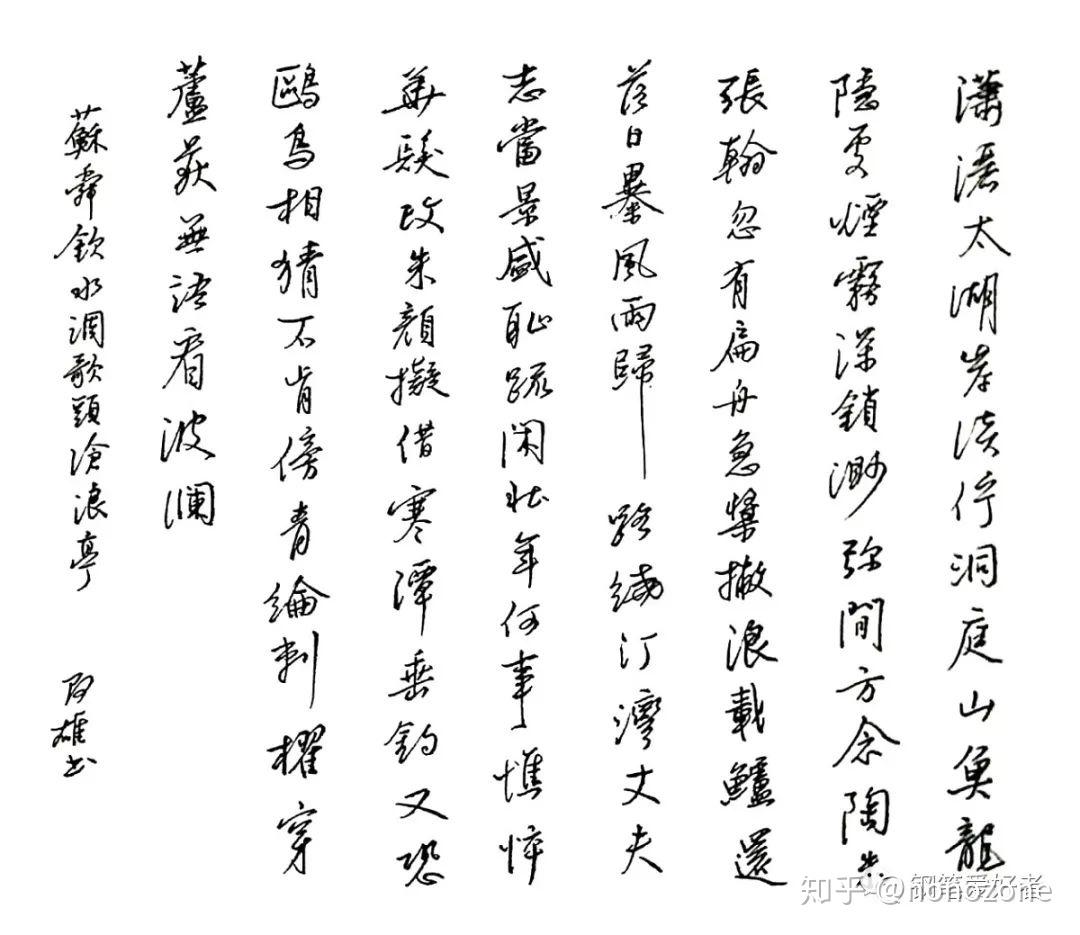 瀟灑太湖岸淡佇洞庭山魚龍
隱處煙霧深鎖渺弥間方念陶朱
張翰忽有扁舟急槳撇浪載鱸還
落日暴風雨歸路繞汀灣丈夫
志當景盛恥疏閑壯年何事憔悴
華髮改朱顏擬借寒潭垂釣又恐
鷗鳥相猜不肯傍青綸刺櫂穿
蘆荻無語看波瀾
蘇舜欽水調歌頭滄浪亭
雄书
钢笔爱好者
知乎 @nonozone